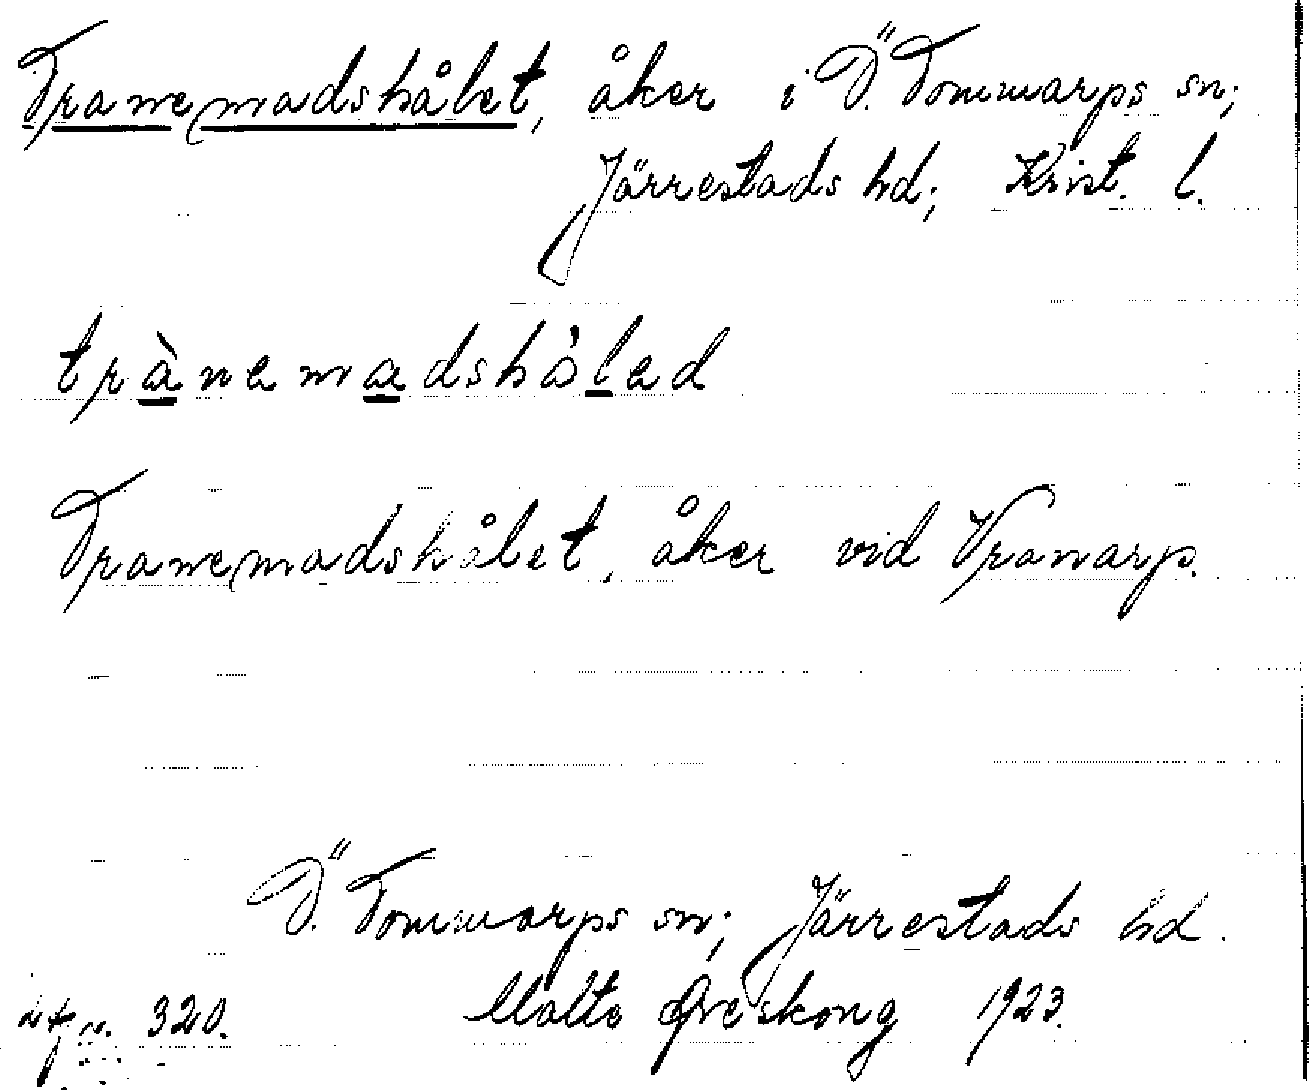 Tranemadshålet, åker i Ö. Tommarps sn;
Järrestads hd; Krist. l.
trànemadshåled
Tranemadshålet, åker vid Vranarp.
Ö. Tommarps sn; Järrestads hd.
320. Malte Areskoug 1923.